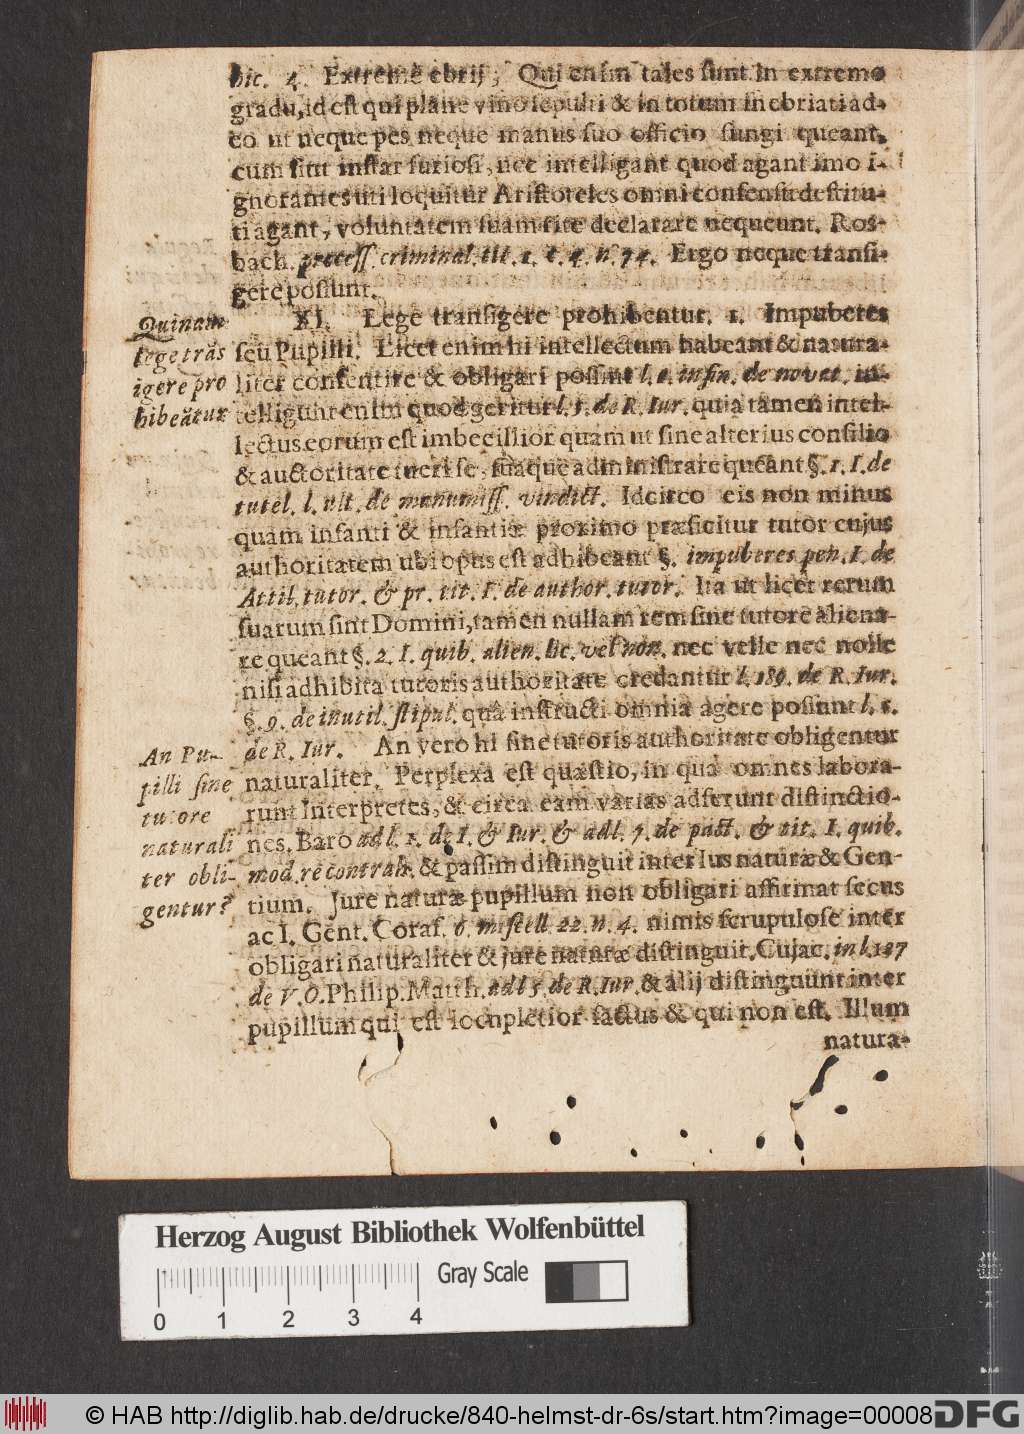 hic. 4. Extremè ebrij, Qui enim tales sunt in extremo
gradu, id est qui planè vino sepulti & in totum inebriati ad-
eo ut neque pes neque manus suo officio fungi queant,
cum sint instar furiosi, nec intelligant quod agant imo i-
gnorantes uti loquitur Aristoteles omni consensu destitu-
ti agant, voluntatem suam rite declarare nequeunt. Ros-
bach. process. criminal. tit. 1. c. 4. n. 74. Ergo neque transi-
gere possunt.
Quinam
lege trãs
igere pro
hibeãtur
XI. Lege transigere prohibentur. 1. Impuberes
seu Pupilli. Licet enim hi intellectum habeant & natura-
liter consentire & obligari possint l. 1. in fin. de novat. in-
telligunt enim quod geritur l. 5. de R. Iur. quia tamen intel-
lectus eorum est imbecillior quam ut sine alterius consilio
& auctoritate tueri se, suaque administrare queant §. 1. I. de
tutel. l. ult. de manumiss. vindict. Idcirco eis non minus
quàm infanti & infantiæ proximo præficitur tutor cujus
authoritatem ubi opus est adhibeant §. impuberes pen. I. de
Attil. tutor. & pr. tit. I. de author. tutor. Ita ut licet rerum
suarum sint Domini, tamen nullam rem sine tutore aliena-
re queant §. 2. I. quib. alien. lic. vel non. nec velle nec nolle
nisi adhibita tutoris authoritate credantur l. 189. de R. Iur.
§. 9. de inutil. stipul. quâ instructi omnia agere possunt l. 5.
An Pu-
pilli sine
tutore
naturali
ter obli-
gentur?
de R. Iur. An vero hi sine tutoris authoritate obligentur
naturaliter. Perplexa est quæstio, in quâ omnes labora-
runt Interpretes, & circa eam varias adferunt distinctio-
nes. Baro ad l. 1. de I. & Iur. & ad l. 7. de pact. & tit. I. quib.
mod. re contrah. & passim distinguit inter Ius naturæ & Gen-
tium. Jure naturæ pupillum non obligari affirmat secus
ac I. Gent. Coras. 6. miscell. 22. n. 4. nimis scrupulose inter
obligari naturaliter & jure naturæ distinguit. Cujac. in l. 127
de V. O. Philip. Matth. ad l 5. de R. Iur. & alij distinguunt inter
pupillum qui est locupletior factus & qui non est. Illum
natura-
Herzog August Bibliothek Wolfenbüttel
Gray Scale
0 1 2 3 4
© HAB http://diglib.hab.de/drucke/840-helmst-dr-6s/start.htm?image=00008
DFG